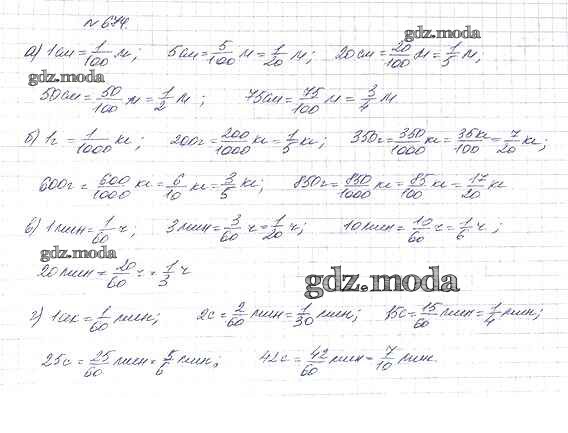 № 674.
gdz.moda
а) 1см = 1/100 м; 5см = 5/100 м = 1/20 м; 20см = 20/100 м = 1/5 м;
gdz.moda
50см = 50/100 м = 1/2 м; 75см = 75/100 м = 3/4 м
б) 1г = 1/1000 кг; 200г = 200/1000 кг = 1/5 кг; 350г = 350/1000 кг = 35кг/100 = 7/20 кг;
600г = 600/1000 кг = 6/10 кг = 3/5 кг; 850г = 850/1000 кг = 85/100 кг = 17/20 кг
в) 1мин = 1/60 ч; 3мин = 3/60 ч = 1/20 ч; 10мин = 10/60 ч = 1/6 ч;
gdz.moda
20мин = 20/60 ч = 1/3 ч
gdz.moda
г) 1сек = 1/60 мин; 2с = 2/60 мин = 1/30 мин; 15с = 15/60 мин = 1/4 мин;
25с = 25/60 мин = 5/6 мин; 42с = 42/60 мин = 7/10 мин.